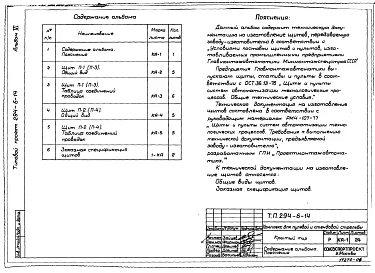 Альбом VI
Типовой проект 294-6-14
Содержание альбома
№ п/п
Наименование
Марка листа
Кол. листов
1 Содержание альбома. Пояснения КА-1 1
2 Щит П-1 (П-3). Общий вид КА-2 5
3 Щит П-1 (П-3). Таблица соединений проводок КА-3 6
4 Щит П-2 (П-4). Общий вид КА-4 5
5 Щит П-2 (П-4). Таблица соединений проводок КА-5 5
6 Заказная спецификация щитов 1-КА 2
Пояснения:
Данный альбом содержит техническую доку-
ментацию на изготовление щитов, передаваемую
заводу-изготовителю в соответствии с
„Условиями поставки щитов и пультов, изго-
тавливаемых промышленными предприятиями
Главмонтажавтоматики Минмонтажспецстроя СССР"
Предприятия Главмонтажавтоматики вы-
пускают щиты, стативы и пульты в соот-
ветствии с ОСТ 36.13-76 „Щиты и пульты
систем автоматизации технологических про-
цессов. Общие технические условия."
Техническая документация на изготовление
щитов составлена в соответствии с
руководящим материалом РМ4-107-77
„Щиты и пульты систем автоматизации техно-
логических процессов. Требования к выполнению
технической документации, передаваемой
заводу-изготовителю",
разработанным ГПИ „Проектмонтажавтома-
тика."
К технической документации на изготовле-
ние щитов относятся:
Общие виды щитов.
Заказная спецификация щитов.
Т.П. 294-6-14
Комплекс для пулевой и стендовой стрельбы
Крытый тир
Р КА-1 24
Содержание альбома.
Пояснения
СОЮЗСПОРТПРОЕКТ
г. Москва